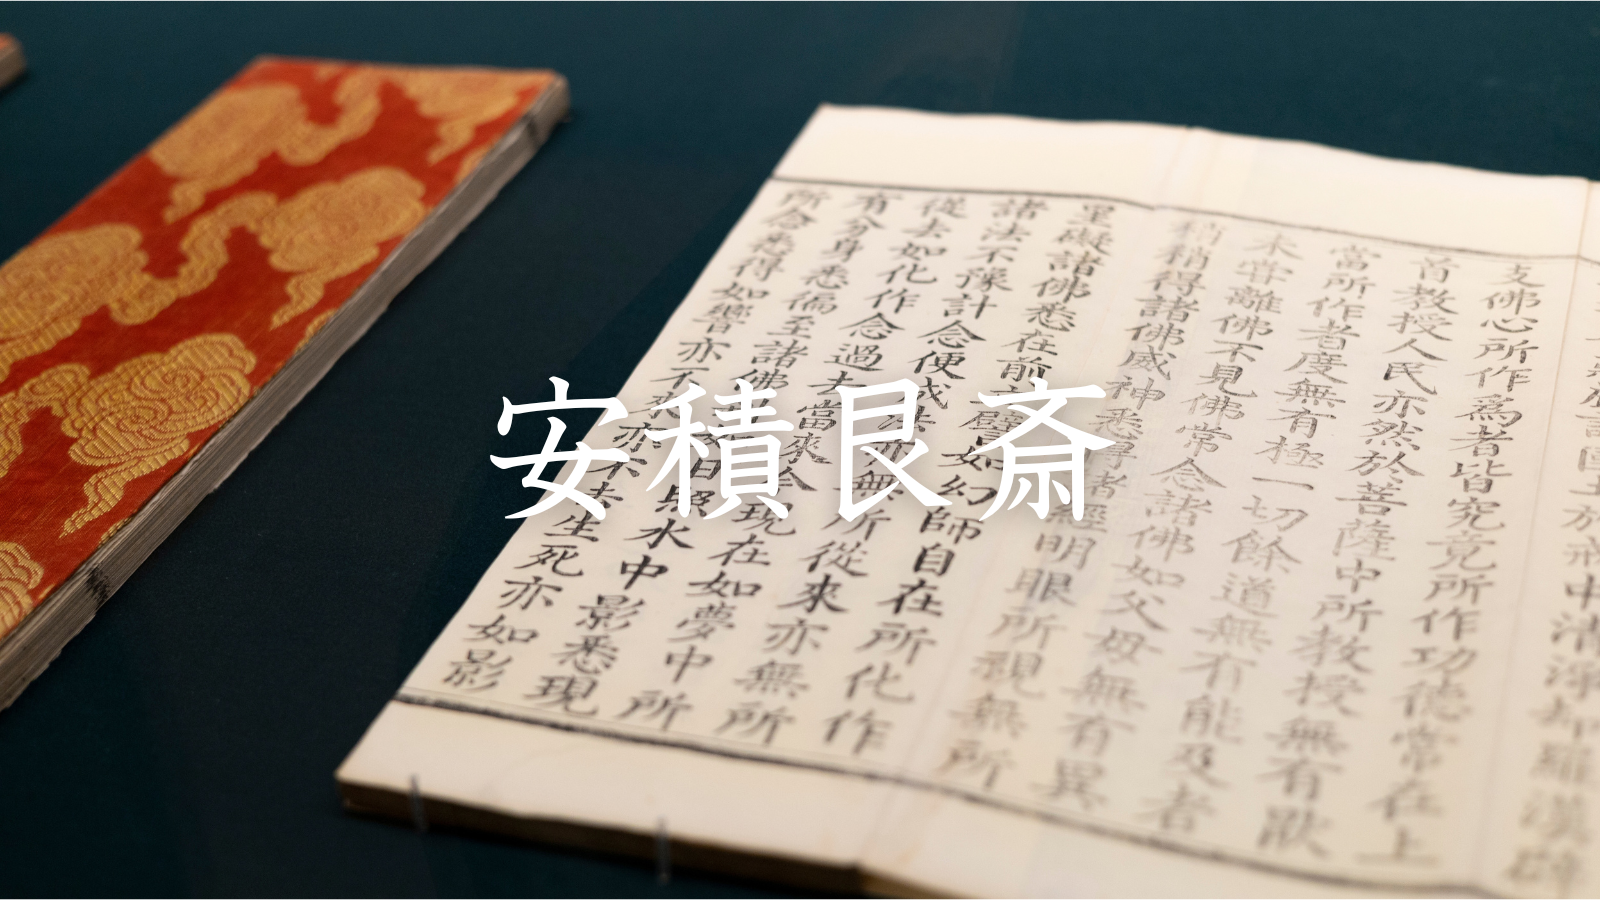 安積艮斎
戒中清淨却羅漢辟
支佛心所作為者皆究竟所作功德常在上
首教授人民亦然於菩薩中所教授無有猒
當所作者度無有極一切餘道無有能及者
未甞離佛不見佛常念諸佛如父母無有異
稍稍得諸佛威神悉享諸經明眼所視無所
罣礙諸佛悉在前譬如幻師自在所化作
諸法不豫計念便成亦無所從來亦無所
從去如化作念過去當來今現在如夢中所
有分身悉徧至諸佛日照水中影悉現
所念悉得如響亦不來亦不去生死亦如影